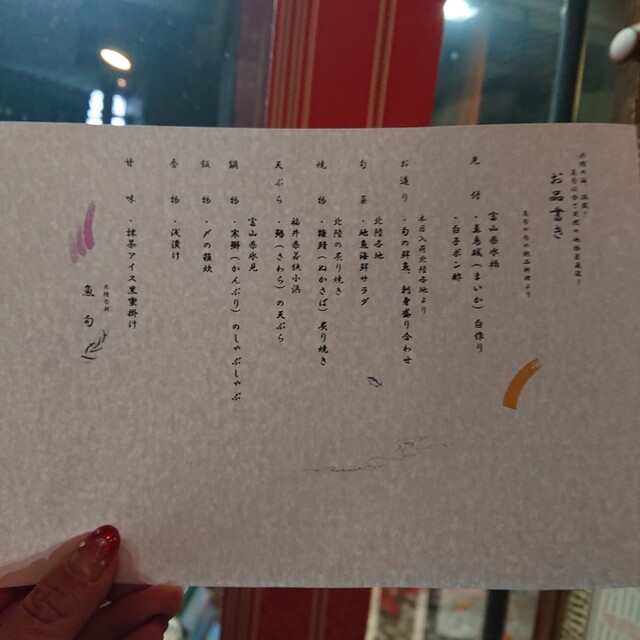 お品書き
先付
富山県水橋
・真烏賊(まいか)白作り
・白子ポン酢
お造り
本日入荷北陸各地より
・旬の鮮魚、刺身盛り合わせ
旬菜
北陸各地
・地魚海鮮サラダ
焼物
北陸の炙り焼き
・糠鯖(ぬかさば)炙り焼き
天ぷら
福井県若狭小浜
・鰆(さわら)の天ぷら
鍋物
富山県氷見
・寒鰤(かんぶり)のしゃぶしゃぶ
飯物
・〆の雑炊
香物
・浅漬け
甘味
・抹茶アイス黒蜜掛け
魚旬